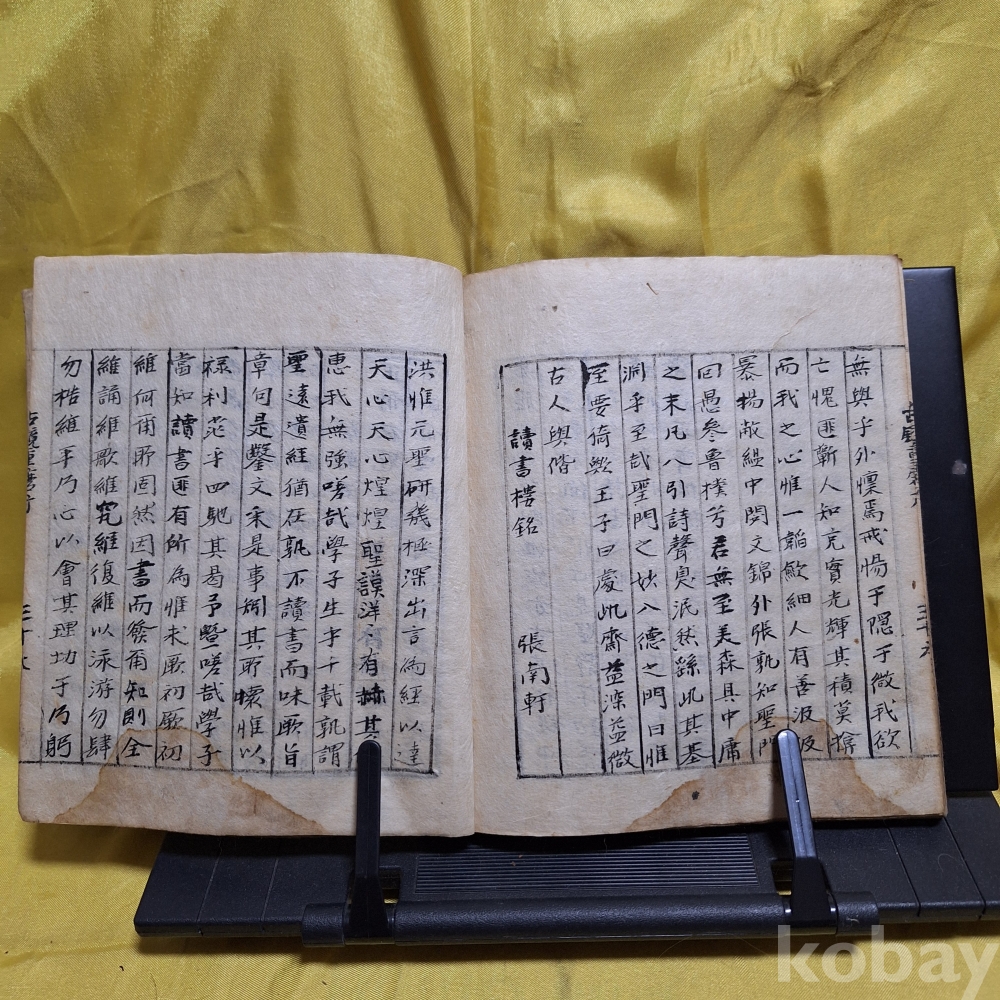 無與乎外懍焉戒惕于隠于微我欲
亡愧匪蘄人知充實光輝其積莫揜
而我之心惟一韜歛細人有善汲汲
暴揚敝縕中閟文錦外張孰知聖門
回愚參魯樸芳君無至美森具中庸
之末凡八引詩聲臭泯然繇此其基
淵乎至哉聖門之妙入德之門曰惟
至要猗歟王子曰處此齋益深益微
古人與偕
讀書樓銘 張南軒
洪惟元聖研幾極深出言爲經以達
天心天心煌煌聖謨洋〻有赫其
惠我無強嗟哉學子生乎千載孰謂
聖遠遺経猶在孰不讀書而味厥旨
章句是鑿文采是事矧其耶懷惟以
禄利茫乎四馳其曷予曁嗟哉學子
當知讀書匪有所為惟求厥初厥初
維何爾所固然因書而發爾知則全
維誦維歌維究維復維以泳游勿肆
勿梏維平乃心以會其理切于乃躬
三十六
kobay